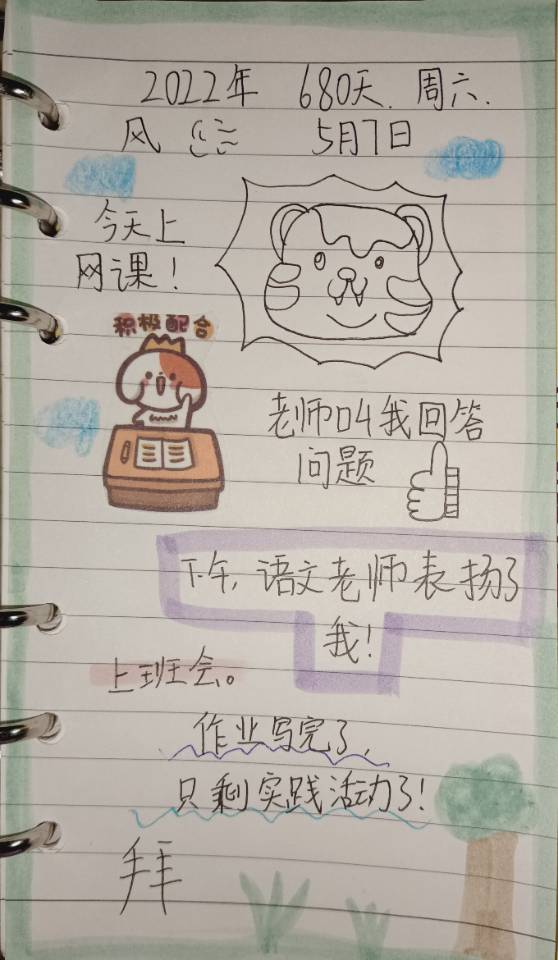 2022年 680天. 周六.
风 5月7日
今天上
网课！
积极配合
老师叫我回答
问题
下午，语文老师表扬了
我！
上班会。
作业写完了，
只剩实践活动了！
拜